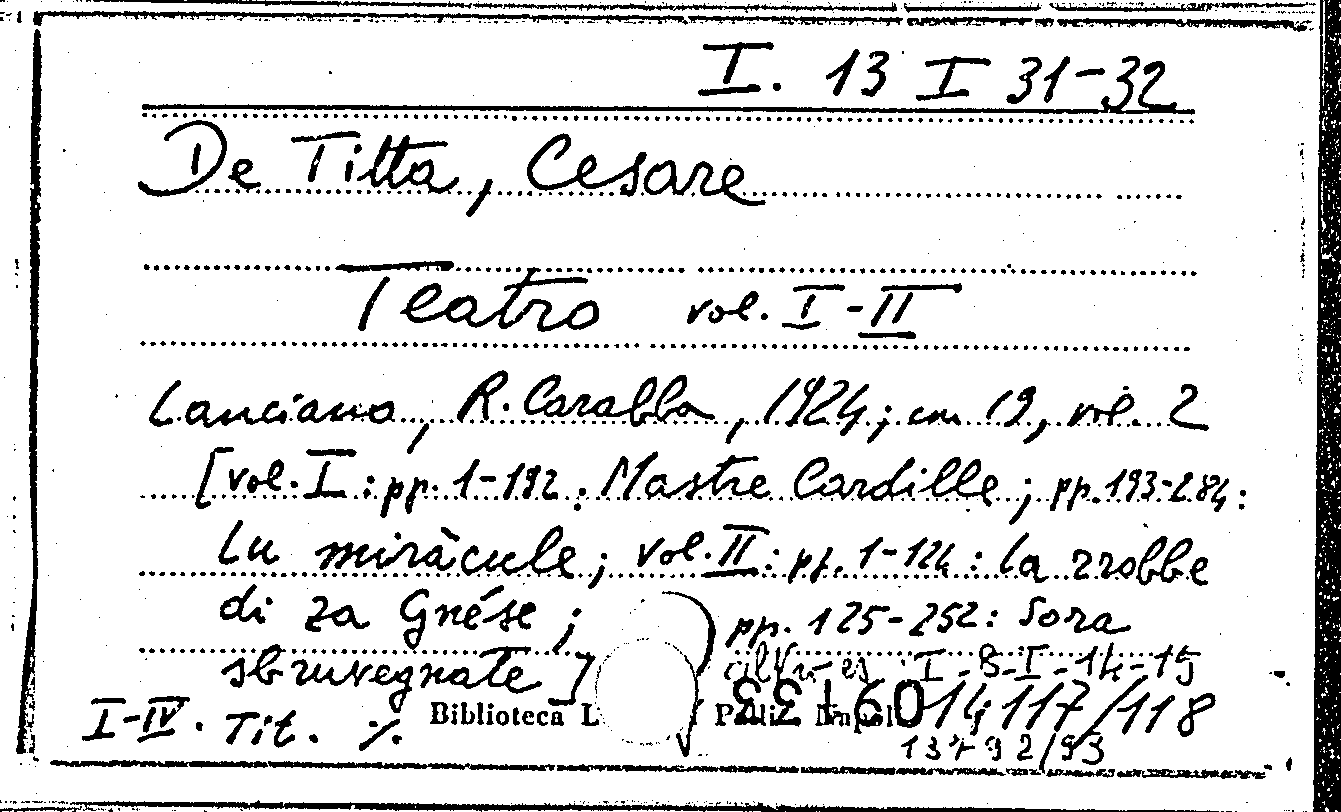 I. 13 I 31-32
De Titta, Cesare
Teatro vol. I-II
Lanciano, R. Carabba, 1924; cm 19, vol. 2
[vol. I: pp. 1-192. Mastre Cardille; pp. 193-284:
Lu miràcule; vol. II: pp. 1-124: La rrobbe
di za Gnése; pp. 125-252: Sora
sbruvegnate]
altro es. I-8-I-14-15
I-IV. Tit. %. Biblioteca 14,117/118